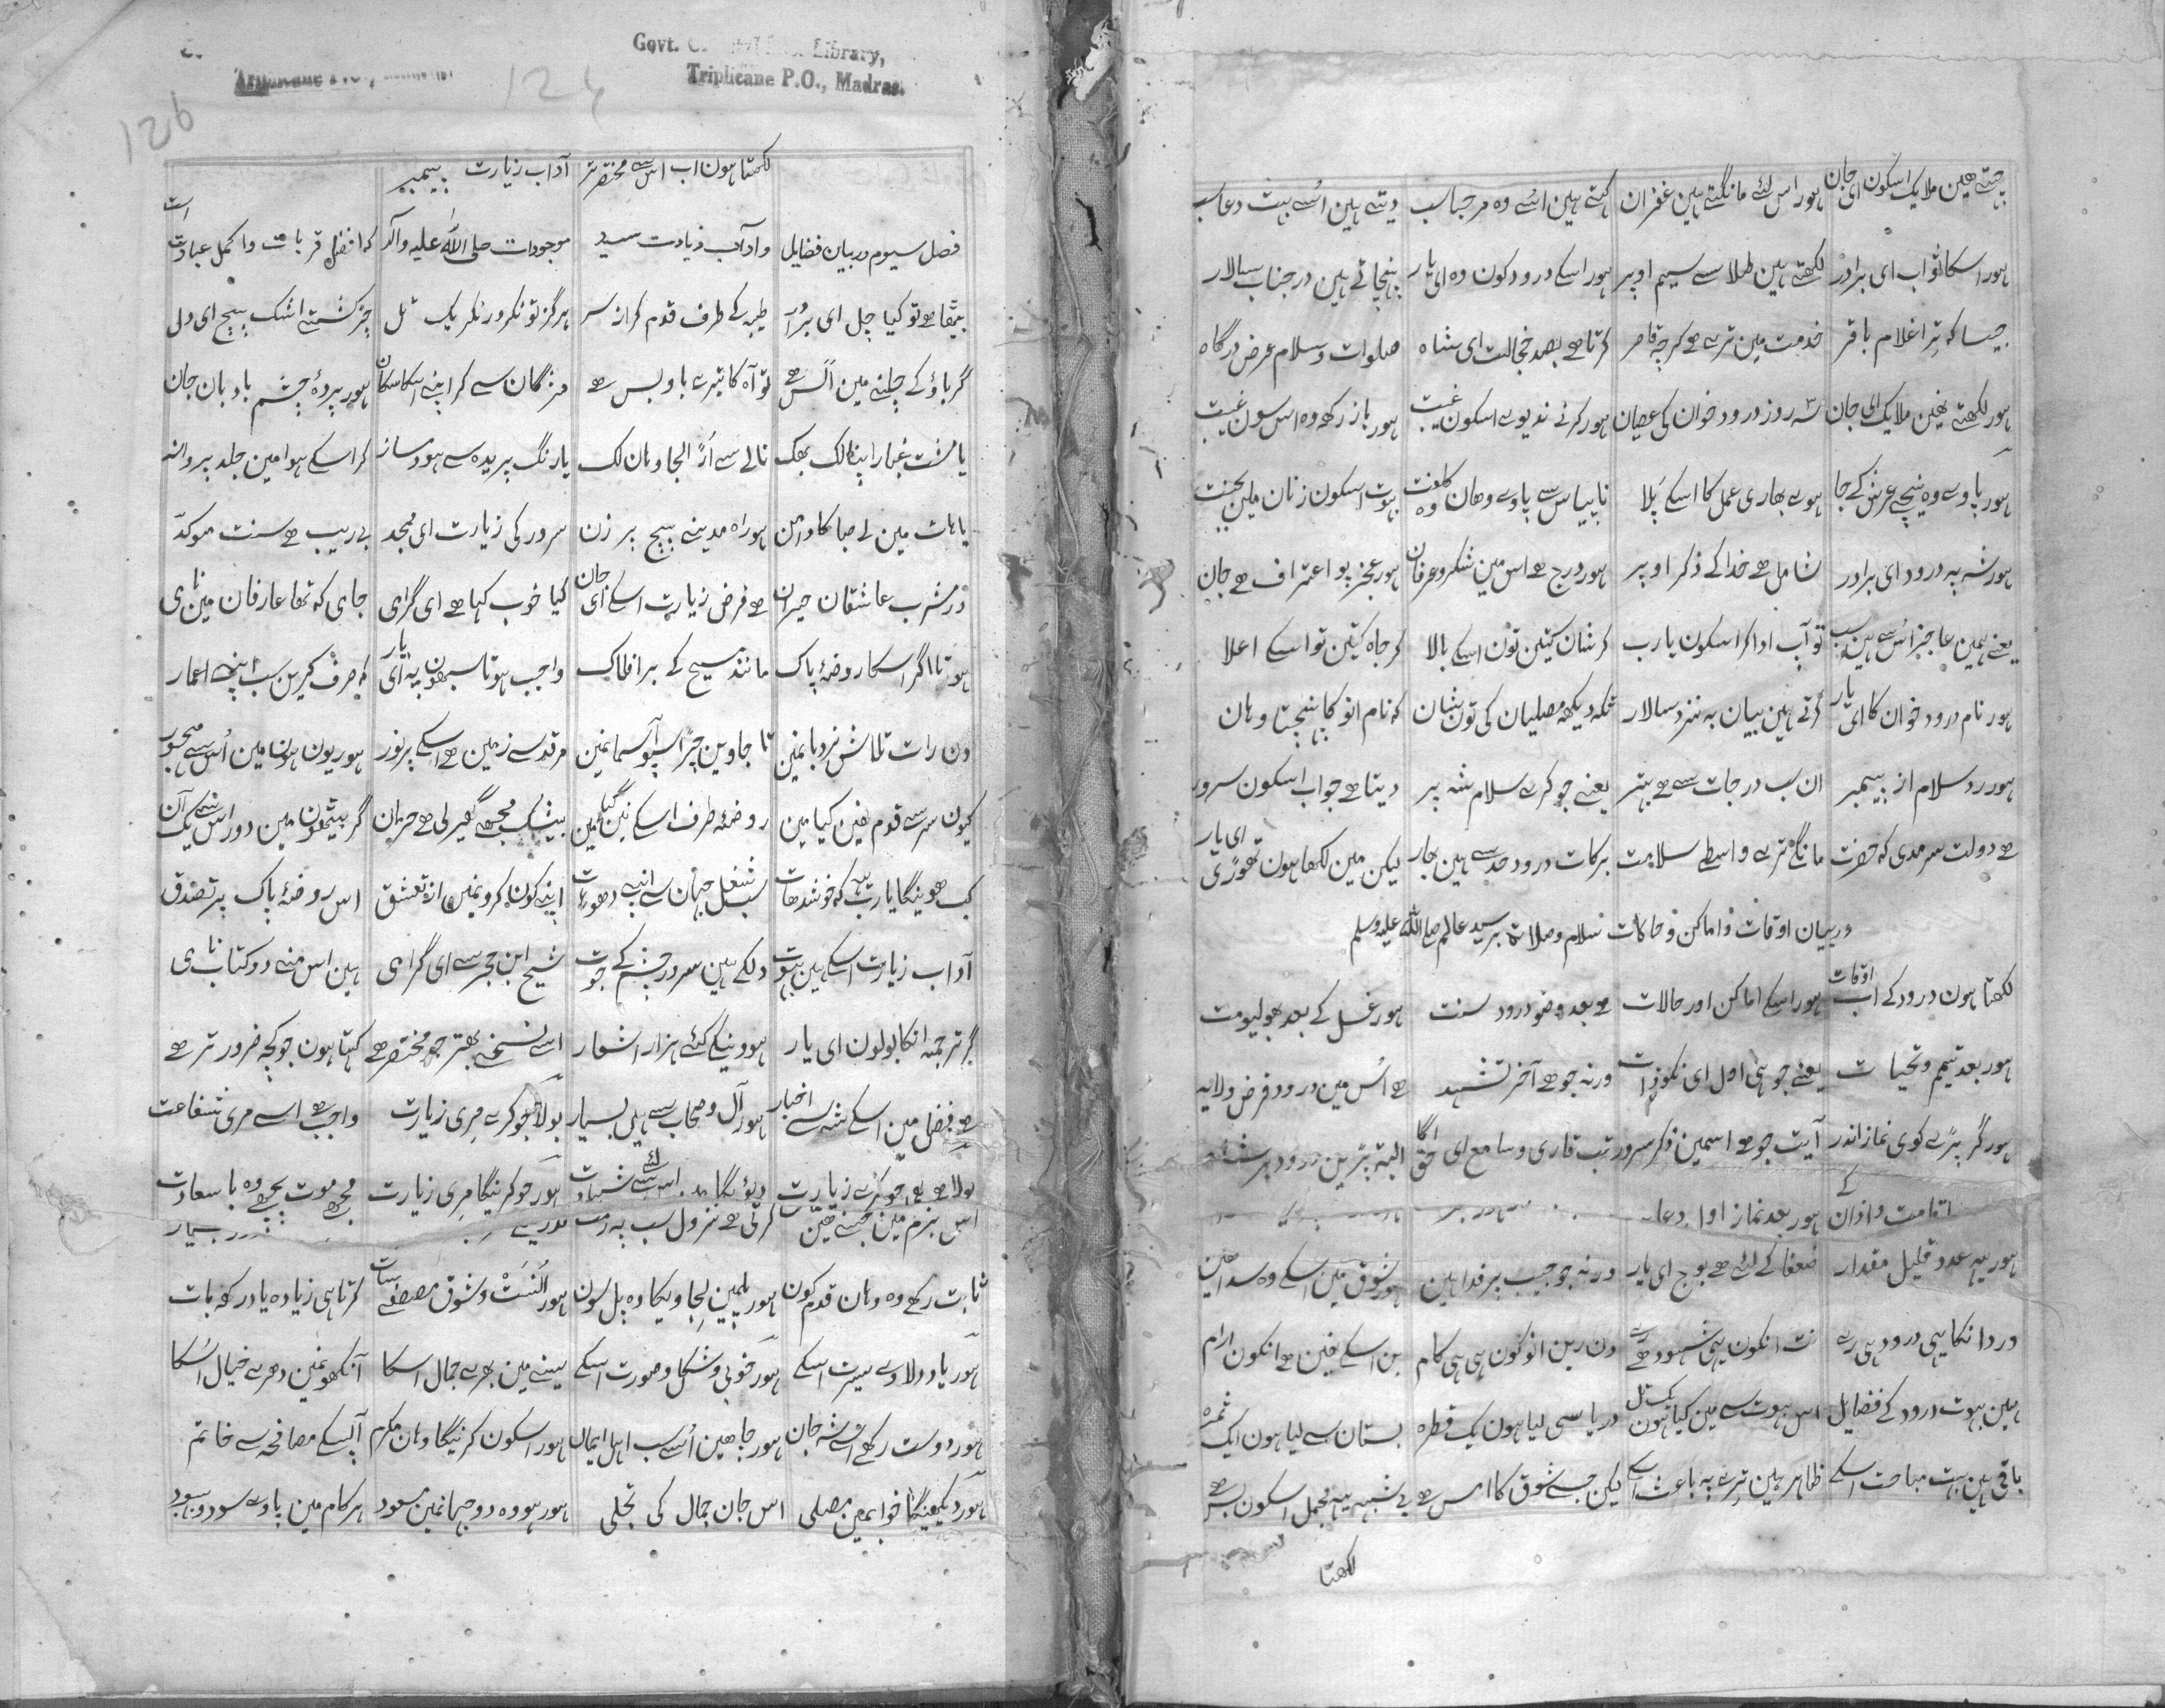 جیتے ہین ملایک اسکون ای جان ہور اس لئے مانگتے ہین غفران کہتے ہین اسے وہ مرحبا سب دیتے ہین اُسے بہت دعا سب
ہور اسکا ثواب ای برادر لکھتے ہین طلا سے سیم اوپر ہور اسکے درود کون وہ ای یار پہنچاتے ہین در جناب سالار
جیسا کہ ترا غلام باقر خدمت مین ترے ہے گرچہ قاصر کرتا ہے بصد خجالت ای شاہ صلوات و سلام عرض درگاہ
ہور لکھتے نھین ملایک ای جان سہ روز درود خوان کی عصیان ہور کرنے ندیوے اسکون غیبت ہور باز رکھے وہ اس سون غیبت
ہور پاوے وہ نیچے عرش کے جا ہوے بھاری عمل کا اسکے پلا نا پیاس سے پاوے وھان وہ کلفت بہوت اسکون زنان ملین بجنت
ہور شہ پہ درود ای برادر شامل ہے خدا کے ذکر اوپر ہور درج ہے اس مین شکر و عرفان ہور عجز پو اعتراف ہے جان
یعنے ہمین عاجز اُس سے ہین سب تو آپ ادا کر اسکون یارب کر شان کیتین تون اسکے بالا کر جاہ کیتین تو اسکے اعلا
ہور نام درود خوان کا ای یار کرتے ہین بیان بہ نزد سالار ٹکہ دیکھہ مصلیان کی تون شان کہ نام انو کا پہنچتا وہان
ہور رد سلام از پیمبر ان سب درجات سے ہے بہتر یعنے جو کرے سلام شہ پر دیتا ہے جواب اسکون سرور
ہے دولت سرمدی کہ حضرت مانگے ترے واسطے سلامت برکات درود حد سے ہین بھار لیکن مین لکھا ہون تھوڑی ای یار
در بیان اوقات و اماکن و حالات سلام و صلات بر سید عالم صلی اللہ علیہ وسلم
لکھتا ہون درود کے اب اوقات ہور اسکے اماکن اور حالات ہے بعد وضو درود سنت ہور غسل کے بعد بھولیو مت
ہور بعد تیمم و تحیات یعنے جو ہی اول ای نکوذات ورنہ جو ہے آخر تشہد ہے اُس مین درود فرض
ہور گر پڑے کوی نماز اندر آیت جو ہے اسمین ذکر سرور تب قاری و سامع ای حق اگا البتہ پڑین درود بر شہ
اقامت و اذان کے ہور بعد نماز
ہور یہہ عدد قلیل مقدار ضعفا کے لئے ہے بوج ای یار ورنہ جو حبیب پر فدا ہین ہور شوق مین اسکے وہ سدا ھین
درد انکا یہی درود ہی رے نت انکون یہی شہود ہے رے دن رین انو کون ہی ہی کام بن اسکے نھین ہے انکون ارام
ہین بہوت درود کے فضایل اس بہوت سے مین کیا ہون یک تل دریا سی لیا ہون یک قطرہ بستان سے لیا ہون ایک ثمرہ
باقی ہین بہت مباحث اسکے ظاہر ہین ترے پہ باعث اسکے لیکن جسے شوق کا امس ہے بے شبہہ یہہ مجمل اسکون بس ہے
لکھتا
Govt. Library,
Triplicane P.O., Madras.
126
لکھتا ہون اب اس سے مختصر تر آداب زیارت پیمبر
فصل سیوم در بیان فضایل و اداب زیارت سید موجودات صلی اللہ علیہ وآلہ کہ افضل قربات و اکمل عبادت است
بیٹھا ہے تو کیا چل ای برادر طیبہ کے طرف قدم کر از سر ہرگز تو نکر ور نکر یک تل چڑ کشتے اشک بیچ ای دل
گر باؤ کے چلنے مین الس ہے تو آہ کا تیرے باو بس ہے مژگان سے کر اپنے اسکا سکان ہور پردۂ چشم بادبان جان
یا مشت غبار اپنا لک بھک نالے سے اُڑا لجا وہان لک یا رنگ پریدہ سے ہو دمساز کر اسکے ہوا مین جلد پرواز
یا ہات مین لے صبا کا دامن ہور راہ مدینے بیچ پر زن سرور کی زیارت ای مجد بے ریب ہے سنت موکدّ
در مشرب عاشقان حیران ہے فرض زیارت اسکے ای جان کیا خوب کہا ہے ای گرامی جامی کہ تھا عارفان مین نامی
ہوتا اگر اسکا روضۂ پاک مانند مسیح کے بر افلاک واجب ہوتا سبھون پہ ای یار کہ صرف کرین سب اپنے اعمار
دن رات تلاش نردبا نمین تا جاوین چڑ اسپو آسما نمین مرقد سے زمین ہے اسکے پرنور ہور یون ہون مین اُس سے مہجور
کیون سر سے قدم نھین کیا مین روضہ طرف اسکے نین گیا مین بیشک مجھے گھیر لی ہے حرمان گر بیٹھون مین دور اس سے یک آن
کب ھوینگا یارب یہہ کہ خوشدھات سب شغل جہان سے اپنے دھو ہات اپنے کون کرونمین از تعشق اس روضۂ پاک پر تصدق
آداب زیارت اسکے ہین بہوت دل کے ہین سرور چشم کے جوت شیخ ابن حجر سے ای گرامی ہین اس منے دو کتاب نامی
گر ترجمہ انکا بولون ای یار ہووینگے کئے ہزار اشعار اس لئے بھتر جو مختصر ہے کہتا ہون جو کچہ ضرور تر ہے
ہے فضل مین اسکے شہ سے اخبار ہور آل و صحاب سے بہی بسیار بولا جو کرے مری زیارت واجب ہے اسے مری شفاعت
بولا ہے جو کرے زیارت دیؤنگا اس لئے شہادت ہور جو کرینگا مری زیارت مجھ موت پچھے وہ با سعادت
اس بزم مین جتنے ھین کرتی ہے نزول سب پہ رحمت
ثابت رکھے وہ وہان قدم کون ہور پلمین لجاویگا وہ پل سون ہور اُنسَتْ و شوق مصطفے سات کرتا ہی زیادہ یاد رکھ بات
ہور یاد دلاوے سیرت اسکے ہور خوبی و شکل و صورت اسکے سینے مین بھرے جمال اسکا آنکھونمین دھرے خیال اُسکا
ہور دوست رکھے اسے شہ جان ہور چاھین اُسے سب اہل ایمان ہور اسکون کرینگا وہان مکرم آپسکے مصافحہ سے خاتم
ہور دیکھینگا خوابمین مصلی اس جان جمال کی تجلی ہور ہووہ دو جہانمین مسعود ہر کام مین پاوے سود و بہبود